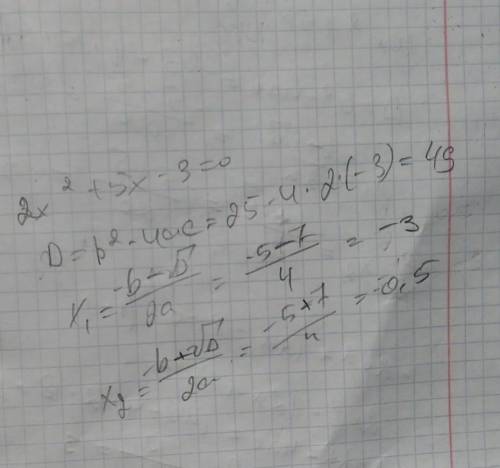 2x² + 5x - 3 = 0
D = b² - 4ac = 25 - 4 · 2 · (-3) = 49
x₁ = (-b - √D) / 2a = (-5 - 7) / 4 = -3
x₂ = (-b + √D) / 2a = (-5 + 7) / 4 = -0,5